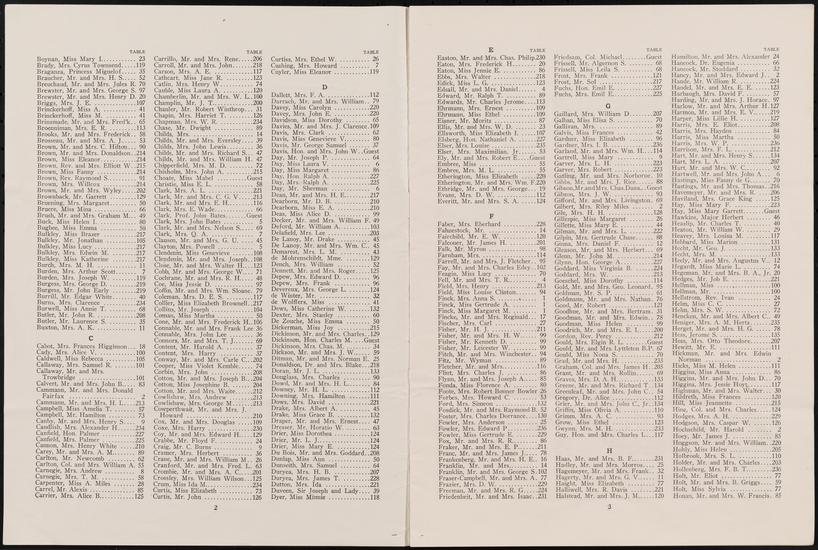 TABLE
Boynan, Miss Mary L. 23
Brady, Mrs. Cyrus Townsend 119
Braganza, Princess Mignelof 35
Braucher, Mr. and Mrs. H. S. 52
Breuchaud, Mr. and Mrs. Jules R. 70
Brewster, Mr. and Mrs. George S. 97
Brewster, Mr. and Mrs. Henry D. 20
Briggs, Mrs. J. E. 107
Brinckerhoff, Miss A. 41
Brinckerhoff, Miss M. 41
Brinsmade, Mr. and Mrs. Fred'k. 65
Broenniman, Mrs. E. R. 113
Brooks, Mr. and Mrs. Frederick 58
Brosseau, Mr. and Mrs. A. J. 53
Brown, Mr. and Mrs. C. Hilton
Brown, Mr. and Mrs. Donaldson 230
Brown, Miss Eleanor 214
Brown, Rev. and Miss Elliott W. 215
Brown, Miss Fanny 214
Brown, Rev. Raymond S. 91
Brown, Miss Wilfrox 214
Brown, Mr. and Mrs. Wyley 202
Brownback, Mr. Garrett 129
Bruening, Miss Margaret 50
Bruere, Miss Mina
Brush, Mr. and Mrs. Graham M. 49
Buck, Miss Helen I. 80
Bugbee, Miss Emma 59
Bulkley, Miss Brauer 217
Bulkley, Mr. Jonathan 105
Bulkley, Miss Lucy 217
Bulkley, Mrs. Edwin M. 217
Bulkley, Miss Katharine 217
Burch, Mrs. M. H. 57
Burden, Mrs. Arthur Scott 7
Burden, Mrs. Joseph W. 119
Burgess, Mrs. George D. 219
Burgess, Mr. John Early 219
Burrill, Mr. Edgar White 40
Burns, Miss Clarence 44
Burwell, Miss Annie T. 68
Butler, Mr. John R. 208
Butler, Mr. Laurence S. 35
Buxton, Mrs. A. K. 1

C
Cabot, Mrs. Frances Higginson 18
Cady, Mrs. Alice V. 100
Caldwell, Miss Rebecca 105
Callaway, Mrs. Samuel R. 101
Callaway, Mr. and Mrs. Trowbridge 101
Calvert, Mr. and Mrs. John B. 83
Cammann, Mr. and Mrs. Donald Fairfax
Cammann, Mr. and Mrs. H. L. 213
Campbell, Miss Amelia T. 57
Campbell, Mr. Hamilton 73
Canby, Mr. and Mrs. Henry S. 9
Candlish, Mrs. Alexander H. 234
Canfield, Hon. Palmer 225
Canfield, Mrs. Palmer 225
Cannon, Mrs. Henry White 210
Carey, Mr. and Mrs. A. M. 89
Carlton, Mr. Newcomb 62
Carlton, Col. and Mrs. William A. 53
Carnegie, Mrs. Andrew 8
Carnegie, Mrs. T. M. 58
Carpenter, Miss A. Miles 28
Carrel, Mr. Alexis 85
Carrier, Mrs. Alice B. 125

TABLE
Carrillo, Mr. and Mrs. Rene 206
Carroll, Mr. and Mrs. John 218
Carson, Mrs. A. E. 117
Cathcart, Miss Jane R. 123
Catlin, Mrs. Henry W. 74
Cauble, Miss Laura A. 120
Chamberlin, Mr. and Mrs. W. L. 100
Champlin, Mr. J. T. 200
Chanler, Mr. Robert Winthrop 31
Chapin, Mrs. Harriet T. 126
Chapman, Mr. W. R. 5
Chase, Mr. Dwight 89
Childs, Mr. 54
Childs, Mr. and Mrs. Eversley 39
Childs, Mrs. John Lewis 33
Childs, Mr. and Mrs. Richard S. 47
Childs, Mr. and Mrs. William H. 47
Chipperfield, Mrs. M. D. 72
Chisholm, Mrs. John A. 215
Choate, Miss Mabel Guest
Christie, Miss E. L. 58
Clark, Mrs. A. L. 221
Clark, Mr. and Mrs. C. G. V. 213
Clark, Mr. and Mrs. E. H. 116
Clark, Mrs. E. Wade 66
Clark, Prof. John Bates Guest
Clark, Mrs. John Bates 5
Clark, Mr. and Mrs. Nelson S. 69
Clark, Mrs. Q. A. 7
Clausen, Mr. and Mrs. G. U. 45
Clayton, Mrs. Powell 51
Clendenin, Miss Genevieve 108
Clendenin, Mr. and Mrs. Joseph 108
Close, Mr. and Mrs. Walter H. 12
Cobb, Mr. and Mrs. George W. 71
Cochrane, Mr. and Mrs. R. H. 48
Coe, Miss Jessie D. 97
Coffin, Mr. and Mrs. Wm. Sloane 79
Coleman, Mrs. D. E. S. 117
Collier, Miss Elizabeth Brownell 217
Collins, Mr. Joseph 104
Comac, Miss Martha 50
Cone, Mr. and Mrs. Frederick H. 105
Connable, Mr. and Mrs. Frank Lee 36
Connable, Mrs. John Lee 36
Connors, Mr. and Mrs. T. J. 99
Content, Mr. Harold A. 37
Content, Mrs. Harry 37
Conway, Mr. and Mrs. Carle C. 202
Cooper, Miss Violet Kemble 74
Corbin, Mrs. John 41
Cotton, Mr. and Mrs. Joseph B. 204
Cotton, Miss Josephine B. 204
Cotton, Mr. and Mrs. Waite 112
Cowlishaw, Mrs. Andrew 213
Cowlishaw, Mrs. George 213
Cowperthwait, Mr. and Mrs. J. Howard 210
Cox, Mr. and Mrs. Douglas 109
Coxe, Mrs. Harry 230
Coy, Mr. and Mrs. Edward H. 129
Crabbe, Mr. Floyd F. 24
Craig, Mr. C. Burns 9
Cramer, Mrs. Herbert 36
Crane, Mr. and Mrs. William M. 26
Cranford, Mr. and Mrs. Fred L. 63
Crombie, Mr. and Mrs. A. C. 201
Crossley, Mrs. William Wilson 125
Crum, Miss Ida M. 234
Curtis, Miss Elizabeth 73
Curtis, Mr. John 126

TABLE
Curtiss, Miss Ethel W. 26
Cushing, Mrs. Howard 7
Cuyler, Miss Eleanor 119

D
Dallett, Mrs. F. A. 112
Darrach, Mr. and Mrs. William 79
Davey, Miss Carolyn 220
Davey, Mrs. John E. 220
Davidson, Miss Dorothy 65
Davies, Mr. and Mrs. J. Clarence 109
Davis, Mrs. Clark 62
Davis, Miss Genevieve V. 80
Davis, Mr. George Samuel
Davis, Hon. and Mrs. John W. Guest
Day, Mr. Joseph P. 64
Day, Miss Laura V. 6
Day, Miss Margaret 86
Day, Hon. Ralph A. 227
Day, Mrs. Ralph A. 225
Day, Mr. Sherman 6
Dean, Mr. and Mrs. H. E. 217
Dearborn, Mr. D. B. 210
Dearborn, Miss E. A. 210
Deas, Miss Alice D. 99
Decker, Mr. and Mrs. William F. 49
Deford, Mr. William A. 110
Delafield, Mrs. Lee 203
De Lanoy, Mr. Drake 45
De Lanoy, Mr. and Mrs. Wm. C. 45
Demarest, Mrs. L. M. 43
de Mohrenschildt, Mme. 129
Denich, Mrs. William 52
Dennett, Mr. and Mrs. Roger 125
Denny, Mr. Thomas 96
Depew, Mrs. Frank 96
Devereux, Mrs. George L. 124
de Winter, Mr. 32
de Wolffers, Miss 41
Dews, Miss Catherine W. 132
Dexter, Mrs. Stanley 60
de Zouche, Miss Emma 50
Dickerman, Miss Joy 215
Dickinson, Mr. and Mrs. Charles 129
Dickinson, Hon. Charles M. Guest
Dickinson, Mrs. Chas. M. 34
Dickson, Mr. and Mrs. J. W. 59
Ditman, Mr. and Mrs. Norman E. 25
Donaldson, Dr. and Miss Blake 218
Doran, Mr. J. L. 133
Douglass, Mrs. Charles 90
Dowd, Mr. and Mrs. H. L. 90
Downey, Mr. H. L. 112
Downing, Mrs. Hamilton 111
Dows, Mrs. David 221
Drake, Mrs. Albert A. 45
Drake, Miss Grace D. 132
Draper, Mr. and Mrs. Ernest 47
Dresser, Mr. Horatio W. 63
Drier, Miss Dorothea 124
Drier, Mr. L. J. 124
Drier, Miss Mary E. 124
Du Bois, Mr. and Mrs. Goddard 208
Dunlap, Miss Ann 50
Dunseith, Mr. Samuel 64
Duryea, Mrs. H. B. 207
Duryea, Mrs. James T. 228
Dutton, Mrs. Ida 221
Duveen, Sir Joseph and Lady 39
Dyer, Miss Minnie 118

2

E
TABLE
Easton, Mr. and Mrs. Chas. Philip 230
Eaton, Mrs. Frederick H. 20
Eaton, Miss Jennie E. 86
Ebbs, Mrs. Walter 218
Edick, Miss L. G. 123
Edsall, Mr. and Mrs. Daniel 4
Edward, Mr. Ralph T. 89
Edwards, Mr. Charles Jerome 113
Ehrmann, Mrs. Ernest 109
Ehrmann, Miss Ethel 109
Eisner, Mr. Moritz 87
Ellis, Mr. and Mrs. W. D. 23
Ellsworth, Miss Elizabeth 10
Elsberg, Hon. Nathaniel A. 227
Elser, Mrs. Louise 53
Elser, Mrs. Maximilian, Jr. 53
Ely, Mr. and Mrs. Robert E. Guest
Embree, Miss 55
Embree, Mrs. M. L. 55
Etherington, Miss Elizabeth 220
Etherington, Mr. and Mrs. Wm. F. 220
Ethridge, Mr. and Mrs. George 122
Evans, Mrs. D. W. 112
Everitt, Mr. and Mrs. S. A. 124

F
Faber, Mrs. Eberhard 228
Fahnestock, Mr. 14
Fairchild, Mr. E. W. 120
Falconer, Mr. James H. 201
Falk, Mr. Myron 98
Farnham, Mrs. 114
Farrell, Mr. and Mrs. J. Fletcher 93
Fay, Mr. and Mrs. Charles Edey 102
Feagin, Miss Lucy 70
Fell, Mr. and Mrs. T. R. 4
Field, Mrs. Henry 213
Field, Miss Louise Clarine 54
Finck, Mrs. Anna S. 1
Finck, Miss Gertrude A. 1
Finck, Miss Margaret M. 1
Fincke, Mr. and Mrs. Reginald 17
Fischer, Mrs. Carl 43
Fisher, Mr. H. J. 211
Fisher, Mr. and Mrs. H. W. 90
Fisher, Mr. Kenneth D. 99
Fisher, Mr. Leicester W. 99
Fitch, Mr. and Mrs. Winchester 94
Fitz, Mr. Wyman 89
Fletcher, Mr. and Mrs. 110
Flint, Mrs. Charles J. 86
Flynn, Mr. and Mrs. Joseph A. 85
Fonda, Miss Florence A. 80
Foote, Mrs. Robert Bonner Bowler 57
Forbes, Mrs. Howard C. 49
Ford, Mrs. Simeon 132
Fosdick, Mr. and Mrs. Raymond B. 12
Foster, Mrs. Charles Dorrance 130
Fowler, Mrs. Anderson 55
Fowler, Mr. Edward P. 236
Fowler, Miss Gertrude E. 229
Fox, Mr. and Mrs. R. R. 60
Fraker, Mr. and Mrs. E. P. 211
Franc, Mr. and Mrs. James J. 76
Frankenberg, Mr. and Mrs. H. E. 16
Franklin, Mr. and Mrs. 14
Franklin, Mr. and Mrs. George S. 102
Fraser-Campbell, Mr. and Mrs. A. 77
Frazier, Mrs. D. W. 229
Freeman, Mr. and Mrs. R. G. 224
Friedenheit, Mr. and Mrs. Isaac 231

Friedsam, Col. Michael Guest
Frissell, Mr. Algernon S. 68
Frissell, Miss Leila S. 68
Frost, Mrs. Frank 121
Frost, Mr. Sol 217
Fuchs, Hon. Emil E. 227
Fuchs, Mrs. Emil E. 225

G
TABLE
Gaillard, Mrs. William D. 207
Galban, Miss Eliza S. 70
Gallivan, Mrs. 89
Galvin, Miss Frances 64
Gammack, Miss Elizabeth 91
Gardner, Mrs. I. B. 236
Garland, Mr. and Mrs. Wm. H. 114
Gartrell, Miss Mary 9
Garver, Mrs. L. H. 223
Garver, Mrs. Robert 223
Gatling, Mr. and Mrs. Norborne 10
Gibbs, Mr. and Mrs. J. Rice 64
Gibson, Mr. and Mrs. Chas. Dana Guest
Gibson, Mrs. J. W. 103
Gifford, Mr. and Mrs. Livingston 69
Gilbert, Mrs. Riley Miles 2
Gile, Mrs. H. H. 128
Gillespie, Miss Margaret 26
Gillette, Miss Mary M. 34
Gilman, Mr. and Mrs. L. 222
Gilpin, Mrs. Gertrude Chase 98
Ginna, Mrs. Daniel F. 12
Gleason, Mr. and Mrs. Herbert 69
Glenn, Mr. John M. 214
Glynn, Hon. George A. 227
Goddard, Miss Virginia B. 224
Goddard, Mrs. W. 213
Goetschel, Miss Dorothy 114
Gold, Mr. and Mrs. Geo. Leonard 95
Goldman, Mr. S. P. 84
Goldmann, Mr. and Mrs. Nathan 76
Good, Mr. Robert 121
Goodbar, Mr. and Mrs. Bertram 31
Goodman, Mr. and Mrs. Edwin 28
Goodman, Miss Helen 99
Goodrich, Mr. and Mrs. E. E. 200
Gordon, Mrs. Percy 212
Gould, Mrs. Elgin R. L. Guest
Gould, Mr. and Mrs. Lyttleton B.P. 62
Gould, Miss Nona S. 70
Grad, Mr. and Mrs. 233
Graham, Col. and Mrs. James H. 203
Grant, Mr. and Mrs. Rollin 69
Graves, Mrs. D. A. H. 133
Greene, Mr. and Mrs. Richard T. 134
Greene, Mr. and Mrs. John L. 131
Gregory, Dr. Alice 112
Grier, Mr. and Mrs. John C., Jr. 131
Griffin, Miss Olivia A. 110
Grimm, Mrs. A. C. 93
Grow, Miss Ethel 123
Gwynn, Mrs. M. H. 213
Guy, Hon. and Mrs. Charles L. 117

H
Haas, Mr. and Mrs. B. F. 231
Hadley, Mr. and Mrs. Morros 25
Hagemeyer, Mr. and Mrs. Frank 32
Hagerty, Mr. and Mrs. G. V. 11
Haight, Miss Elizabeth 77
Halliwell, Mrs. R. Davis 221
Halstead, Mr. and Mrs. J. M. 120

TABLE
Hamilton, Mr. and Mrs. Alexander 24
Hancock, Dr. Eugenia 66
Hancock, Mr. Stoddard 32
Hancy, Mr. and Mrs. Edward J. 2
Hande, Mr. William R. 224
Handel, Mr. and Mrs. E. E. 123
Harbaugh, Mrs. David F. 57
Harding, Mr. and Mrs. J. Horace 97
Harlow, Mr. and Mrs. Arthur H. 127
Harmon, Mr. and Mrs. E. V. 219
Harper, Miss Lillie H. 127
Harris, Mr. E. Elliot 208
Harris, Mrs. Hayden 84
Harris, Miss Martha 50
Harris, Mrs. W. P. 236
Harrison, Mrs. F. L. 212
Hart, Mr. and Mrs. Henry S. 134
Hart, Mrs. L. A. 207
Hart, Mr. and Mrs. W. C. 20
Hartwell, Mr. and Mrs. John A. 6
Hastings, Miss Fanny de G. 74
Hastings, Mr. and Mrs. Thomas 216
Havemeyer, Mr. and Mrs. R. 206
Haviland, Mrs. Grace King 125
Hay, Miss Mary F. 223
Hay, Miss Mary Garrett Guest
Hawkins, Major Herbert 35
Headly, Mr. Charles J. 40
Hearon, Mr. William W. 29
Heaver, Mrs. Louisa M. 117
Hebbard, Miss Marion 131
Hecht, Mr. Geo. J. 133
Hecht, Mrs. M. 133
Hedy, Mr. and Mrs. Augustus V. 12
Hegardt, Miss Marie L.
Hegeman, Mr. and Mrs. B. A., Jr. 20
Helges, Mr. Job E. 221
Heilman, Miss 100
Hellman, Mr. 100
Helfstrom, Rev. Ivan 24
Helm, Miss C. C. 92
Helms, Mrs. S. W. 72
Hencken, Mr. and Mrs. Albert C. 49
Henry, Mrs. A. M. Hertz 233
Herget, Mr. and Mrs. H. D. 78
Herz, Jerome B. 135
Hess, Mrs. Otto Theodore 207
Hewitt, Mr. E. 111
Hickman, Mr. and Mrs. Edwin Norman 2
Hicks, Miss M. Helen 111
Higgins, Miss Anna 86
Higgins, Mr. and Mrs. John D. 75
Higgins, Mrs. Josie Hoyt 117
Higgins, Mr. and Mrs. Walter 30
Hildreth, Miss Frances 120
Hill, Miss Jeannette 215
Hine, Col. and Mrs. Charles 124
Hodges, Mrs. A. H. 229
Hodgson, Mrs. Caspar W. 126
Hochschild, Mr. Harold 39
Hoey, Mr. James J. 85
Hoggson, Mr. and Mrs. William 220
Hohly, Miss Helen 205
Holbrook, Mrs. S. L. 110
Holder, Mr. and Mrs. Charles 203
Hollenberg, Mrs. F. R. T. 236
Holt, Mr. Elliot 77
Holt, Mr. and Mrs. B. Griggs 59
Holt, Miss Sylvia 77
Honan, Mr. and Mrs. W. Francis 85

3